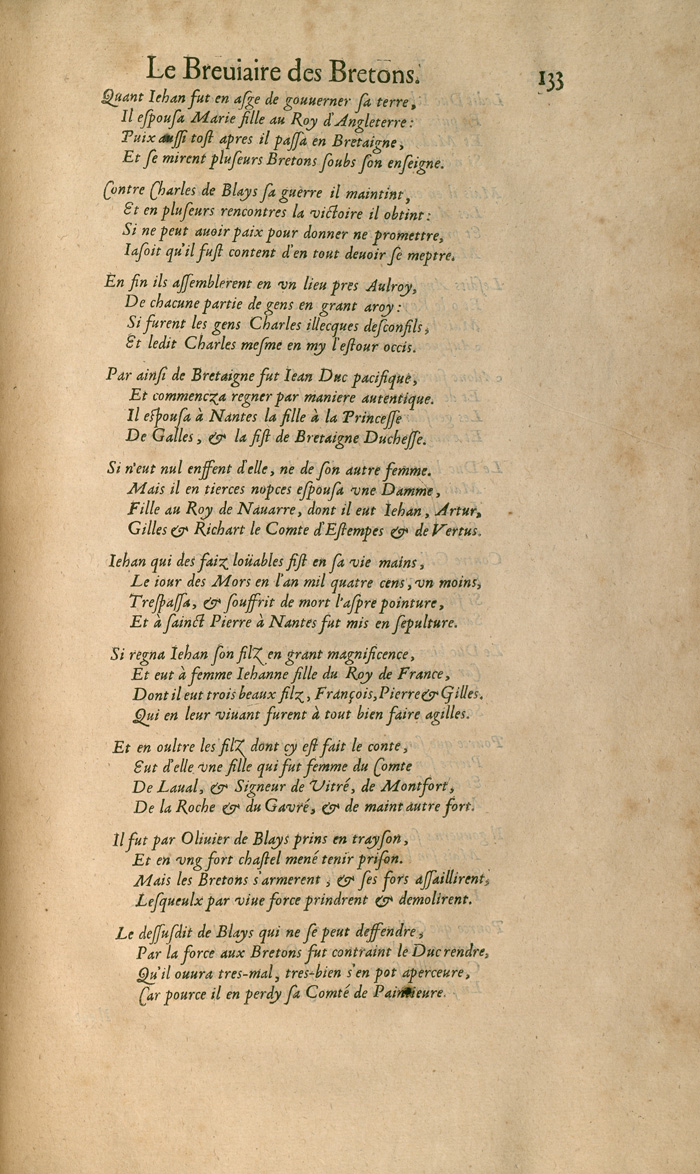 Le Breuiaire des Bretons.
133
Quant Iehan fut en aſge de gouuerner ſa terre,
Il eſpouſa Marie fille au Roy d'Angleterre:
Puix auſſi toſt apres il paſſa en Bretaigne,
Et ſe mirent pluſeurs Bretons ſoubs ſon enſeigne.
Contre Charles de Blays ſa guerre il maintint,
Et en pluſeurs rencontres la victoire il obtint:
Si ne peut auoir paix pour donner ne promettre,
Iaſoit qu'il fuſt content d'en tout deuoir ſe meptre.
En fin ils aſſemblerent en vn lieu pres Aulroy,
De chacune partie de gens en grant aroy:
Si furent les gens Charles illecques deſconfils,
Et ledit Charles meſme en my l'eſtour occis.
Par ainſi de Bretaigne fut Iean Duc pacifique,
Et commencza regner par maniere autentique.
Il eſpouſa à Nantes la fille à la Princeſſe
De Galles, & la fiſt de Bretaigne Ducheſſe.
Si n'eut nul enffent d'elle, ne de ſon autre femme.
Mais il en tierces nopces eſpouſa vne Damme,
Fille au Roy de Nauarre, dont il eut Iehan, Artur,
Gilles & Richart le Comte d'Eſtempes & de Vertus.
Iehan qui des faiz loüables fiſt en ſa vie mains,
Le iour des Mors en l'an mil quatre cens, vn moins,
Treſpaſſa, & ſouffrit de mort l'aſpre pointure,
Et à ſainct Pierre à Nantes fut mis en ſepulture.
Si regna Iehan ſon filz en grant magnificence,
Et eut à femme Iehanne fille du Roy de France,
Dont il eut trois beaux filz, François, Pierre & Gilles.
Qui en leur viuant furent à tout bien faire agilles.
Et en oultre les filz dont cy eſt fait le conte,
Eut d'elle vne fille qui fut femme du Comte
De Laual, & Signeur de Vitré, de Montfort,
De la Roche & du Gavré, & de maint autre fort.
Il fut par Oliuier de Blays prins en trayſon,
Et en vng fort chaſtel mené tenir priſon.
Mais les Bretons s'armerent, & ſes fors aſſaillirent,
Leſqueulx par viue force prindrent & demolirent.
Le deſſuſdit de Blays qui ne ſe peut deffendre,
Par la force aux Bretons fut contraint le Duc rendre,
Qu'il ouura tres-mal, tres-bien s'en pot aperceure,
Car pource il en perdy ſa Comté de